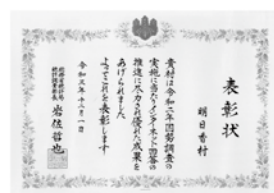 表彰状
明日香村
貴村は令和二年国勢調査の
実施に当たりインターネット回答の
推進に尽力され優れた成果を
あげられました
よってこれを表彰します
令和三年十二月一日
総務省統計局
統計調査部長
岩佐哲也